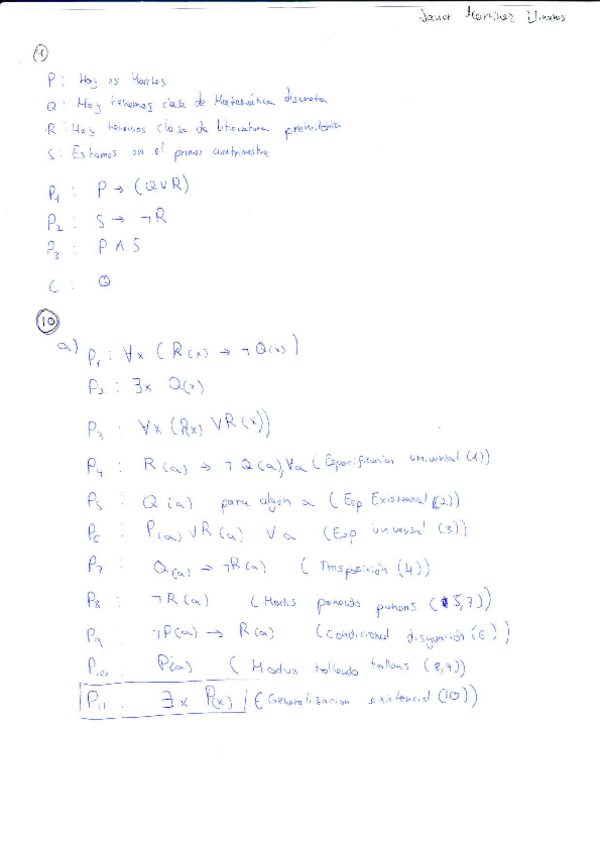 Javier Martínez
1
P: Hoy es Martes
Q: Hoy tenemos clase de Matemática discreta
R: Hoy tenemos clase de Literatura prehistórica
S: Estamos en el primer cuatrimestre
P1: P → (Q ∨ R)
P2: S → ¬R
P3: P ∧ S
C: Q
10
a) P1: ∀x (R(x) → ¬Q(x))
P2: ∃x Q(x)
P3: ∀x (P(x) ∨ R(x))
P4: R(a) → ¬Q(a), ∀a (Especificación universal (1))
P5: Q(a) para algún a (Esp Existencial (2))
P6: P(a) ∨ R(a) ∀a (Esp universal (3))
P7: Q(a) → ¬R(a) (Trasposición (4))
P8: ¬R(a) (Modus ponendo ponens (5,7))
P9: ¬P(a) → R(a) (Condicional disyunción (6))
P10: P(a) (Modus tollendo tollens (8,9))
P11: ∃x P(x) (Generalización existencial (10))